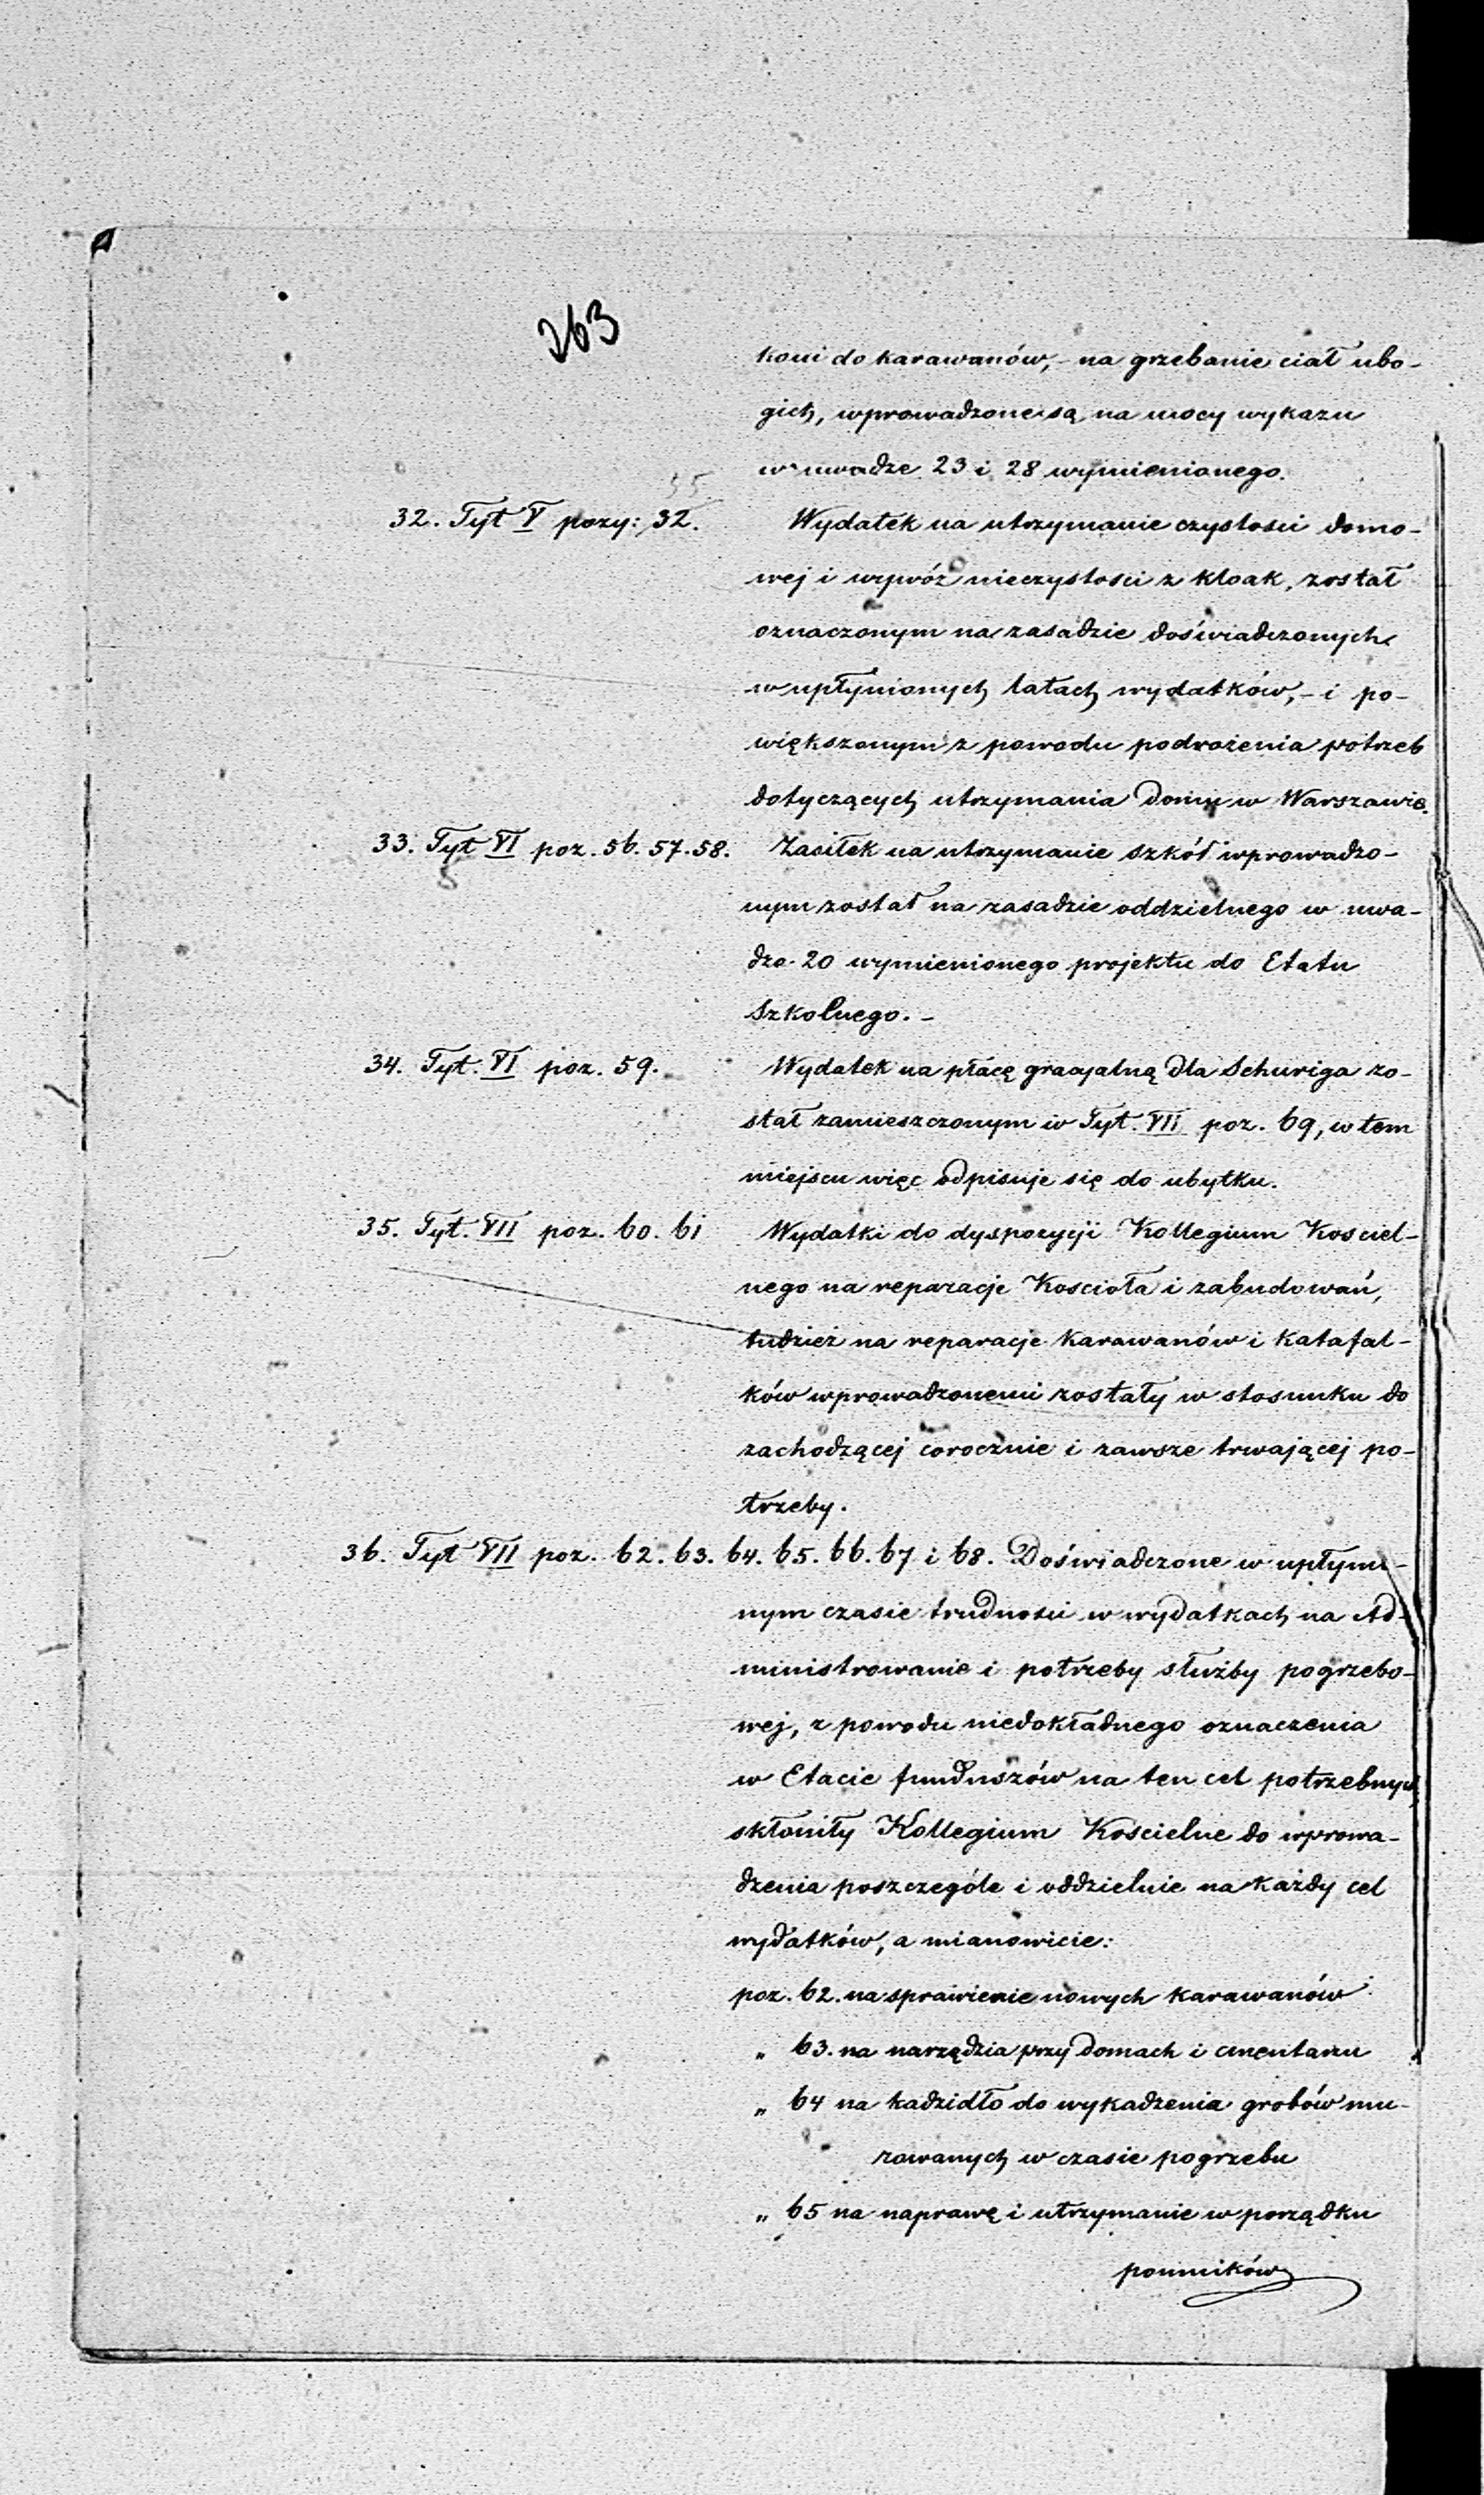 263
koni do karawanów, - na grzebanie ciał ubo-
gich, wprowadzone są na mocy wykazu
w uwadze 23 i 28 wymienionego.
55
32. Tyt V pozy: 32. Wydatek na utrzymanie czystości domo-
wej i wywóz nieczystości z kloak, został
oznaczonym na zasadzie doświadczonych
w upłynionych latach wydatków, - i po-
większonym z powodu podrożenia potrzeb
dotyczących utrzymania domu w Warszawie.
33. Tyt VI poz. 56. 57. 58. Zasiłek na utrzymanie szkół wprowadzo-
nym został na zasadzie oddzielnego w uwa-
dze 20 wymienionego projektu do Etatu
Szkolnego. -
34. Tyt. VI poz. 59. Wydatek na płacę gracyalną dla Schuriga zo-
stał zamieszczonym w Tyt. VII poz. 69, w tem
miejscu więc odpisuje się do ubytku.
35. Tyt. VII poz. 60. 61 Wydatki do dyspozycji Kollegium Kosciel-
nego na reparacje Koscioła i zabudowań,
tudzież na reparacje Karawanów i Katafal-
ków wprowadzonemi zostały w stosunku do
zachodzącej corocznie i zawsze trwającej po-
trzeby.
36. Tyt VII poz. 62. 63. 64. 65. 66. 67 i 68. Doświadczone w upłynio-
nym czasie trudności w wydatkach na Ad-
ministrowanie i potrzeby służby pogrzebo-
wej, z powodu niedokładnego oznaczenia
w Etacie funduszów na ten cel potrzebnych,
skłoniły Kollegium Kościelne do wprowa-
dzenia poszczególe i oddzielnie na każdy cel
wydatków, a mianowicie:
poz. 62. na sprawienie nowych karawanów
" 63. na narzędzia przy domach i cmentarzu
" 64 na kadzidło do wykadzenia grobów mu-
rowanych w czasie pogrzebu
" 65 na naprawę i utrzymanie w porządku
pomników